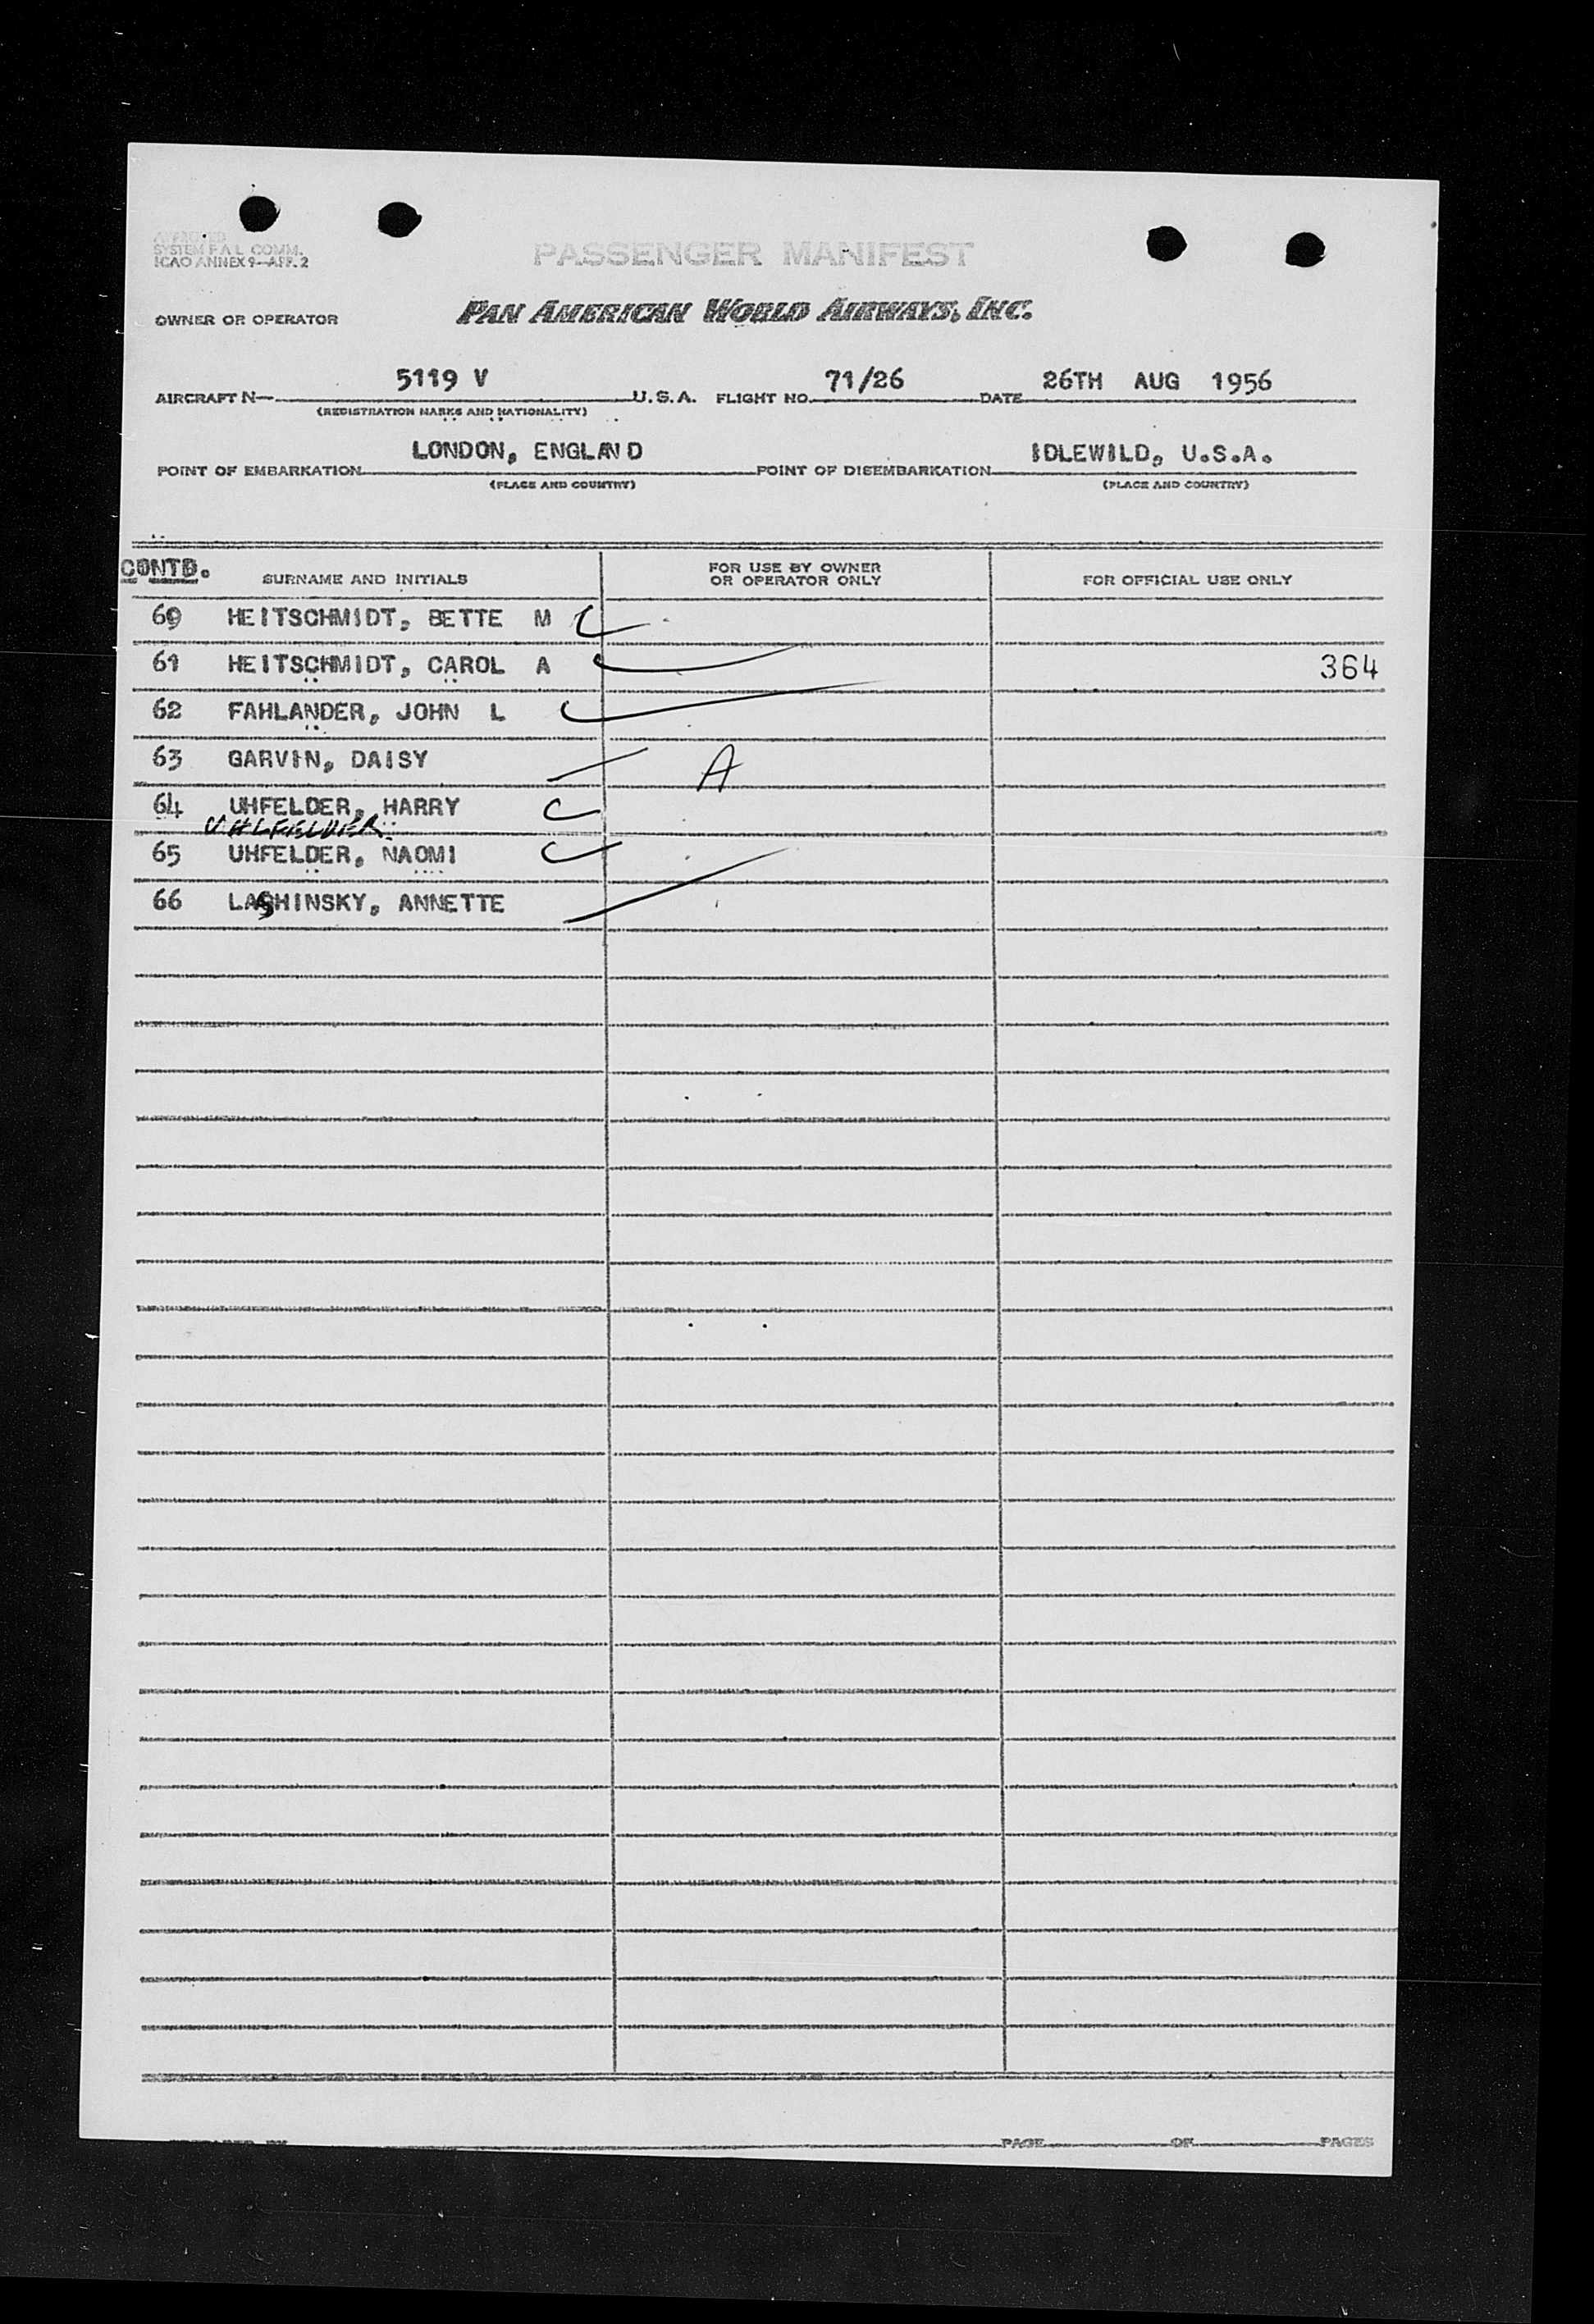 APPROVED
SYSTEM F.A.L. COMM.
ICAO ANNEX 9—APP. 2
PASSENGER MANIFEST
OWNER OR OPERATOR PAN AMERICAN WORLD AIRWAYS, INC.
AIRCRAFT N— 5119 V U.S.A. FLIGHT NO. 71/26 DATE 26TH AUG 1956
(REGISTRATION MARKS AND NATIONALITY)
POINT OF EMBARKATION LONDON, ENGLAND POINT OF DISEMBARKATION IDLEWILD, U.S.A.
(PLACE AND COUNTRY) (PLACE AND COUNTRY)
CONTD. SURNAME AND INITIALS FOR USE BY OWNER OR OPERATOR ONLY FOR OFFICIAL USE ONLY
60 HEITSCHMIDT, BETTE M
61 HEITSCHMIDT, CAROL A 364
62 FAHLANDER, JOHN L
63 GARVIN, DAISY A
64 UHFELDER, HARRY
UHLFELDER
65 UHFELDER, NAOMI
66 LASHINSKY, ANNETTE
PAGE OF PAGES